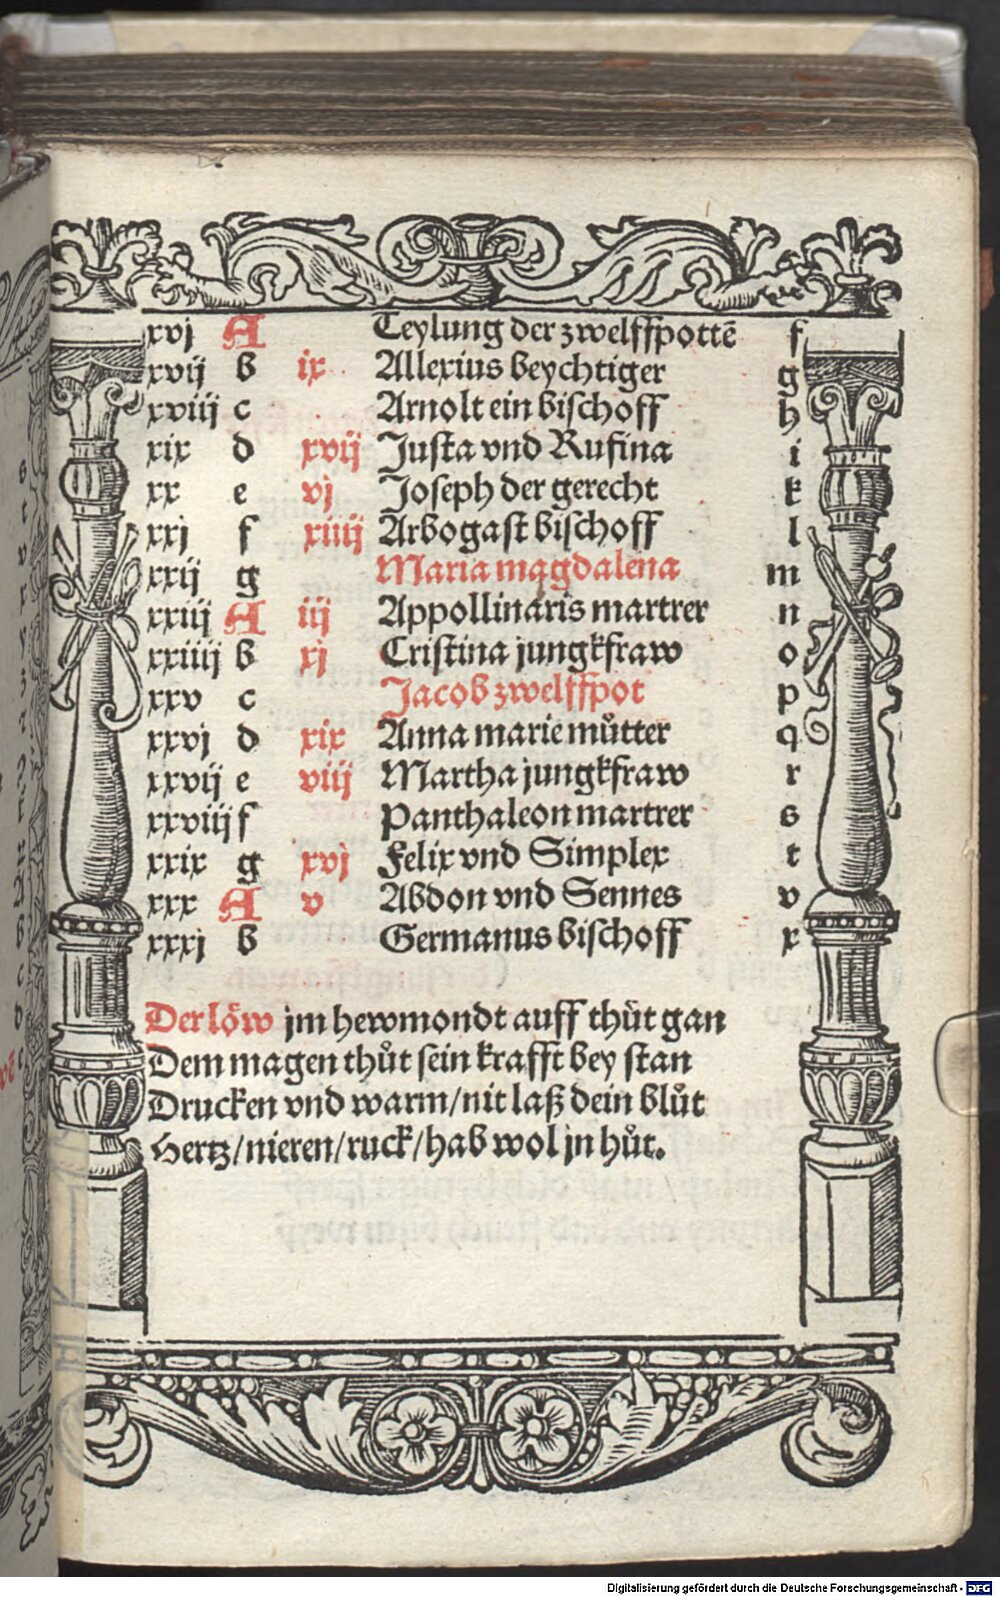 xvj A Teylung der zwelffpottē f
xvij b ix Allexius beychtiger g
xviij c Arnolt ein bischoff h
xix d xvij Justa vnd Rufina i
xx e vj Joseph der gerecht k
xxj f xiiij Arbogast bischoff l
xxij g Maria magdalena m
xxiij A iij Appollinaris martrer n
xxiiij b xj Cristina jungkfraw o
xxv c Jacob zwelffpot p
xxvj d xix Anna marie můtter q
xxvij e viij Martha jungkfraw r
xxviij f Panthaleon martrer s
xxix g xvj Felix vnd Simplex t
xxx A v Abdon vnd Sennes v
xxxj b Germanus bischoff x
Der löw jm hewmondt auff thůt gan
Dem magen thůt sein krafft bey stan
Drucken vnd warm/nit laß dein blůt
Hertz/nieren/ruck/hab wol jn hůt.
Digitalisierung gefördert durch die Deutsche Forschungsgemeinschaft - DFG